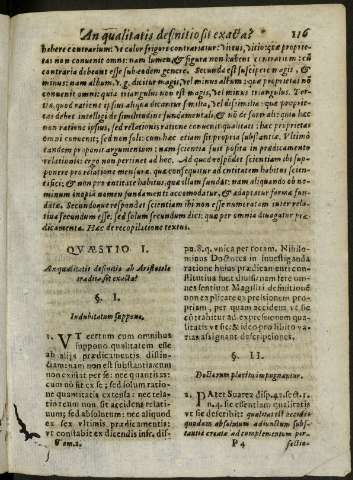 An qualitatis definitio sit exacta? 116
habere contrarium: vt calor frigori contrariatur: virtus, vitio: quæ proprie-
tas non conuenit omni: nam lumen, & figura non habent contrarium: cũ
contraria debeant esse sub eodem genere. Secunda est suscipere magis, &
minus: nam album, v.g. dicitur magis, vel minus album: quæ proprietas nõ
conuenit omni: quia triangulus non est magis, vel minus triangulus. Ter-
tia, quod ratione ipsius aliqua dicantur similia, vel dissimilia: quæ proprie-
tas debet intelligi de similitudine fundamentali, & nõ de formali: quia hæc
non ratione ipsius, sed relationis ratione conuenit qualitati: hæc proprietas
omni conuenit; sed non soli: com hæc etiam sit propria substantiæ. Vltimò
tandem proponit argumentum: nam scientia sust posita in prædicamento
relationis: ergo non pertinet ad hoc. Ad quod respõdet scientiam ibi sup-
ponere pro relatione mensuræ, quæ consequitur ad entitatem habitus scien-
tifici; & non pro entitate habitus, quæ illam fundat: nam aliquando ob no-
minum inopiã nomen fundamenti accomodatur, & adaptatur formæ fun-
datæ. Secundo que respondet scientiam ibi non esse numeratam inter rela-
tiua secundum esse, sed solum secundum dici: quæ per omnia diuagatur præ-
dicamenta. Hæc de recopilatione textus.
QVÆSTIO I.
An qualitatis definitio ab Aristotele
tradita sit exacta?
§. I.
Indubitatum suppono.
1. VT certum cum omnibus
suppono qualitatem esse
ab alijs prædicamentis distin-
ctam: nam non est substantia: cum
non existat per se: nec quantitas:
cum nõ sit ex se; sed solum ratio-
ne quantitatis extensa: nec rela-
tio: rerum non, sit accidens relati-
uum; sed absolutum: nec aliquod
ex sex vltimis prædicamentis:
vt constabit ex dicendis infr. dis-
Tom. 2.
pu. 8. q. vnica per totam. Nihilo-
minus Doctores in inuestiganda
ratione huius prædicamenti con-
stitutiua sunt diuisi: nam fere om-
nes sentiunt Magistri definitione
non explicare expressionem pro-
priam, per quam accidens vt sic
cõtrahitur ad expressionem qua-
litatis vt sic, & ideo pro libito va-
rias assignant descriptiones.
§. II.
Doctorum placita impugnantur.
2. PAter Suarez disp. 42. sect. 1.
n. 4. sic essentiam qualitatis
vt sic describit: qualitas est accidens
quoddam absolutum adiunctum subs-
tantiæ creatæ ad complementum per-
P 4 fectio-